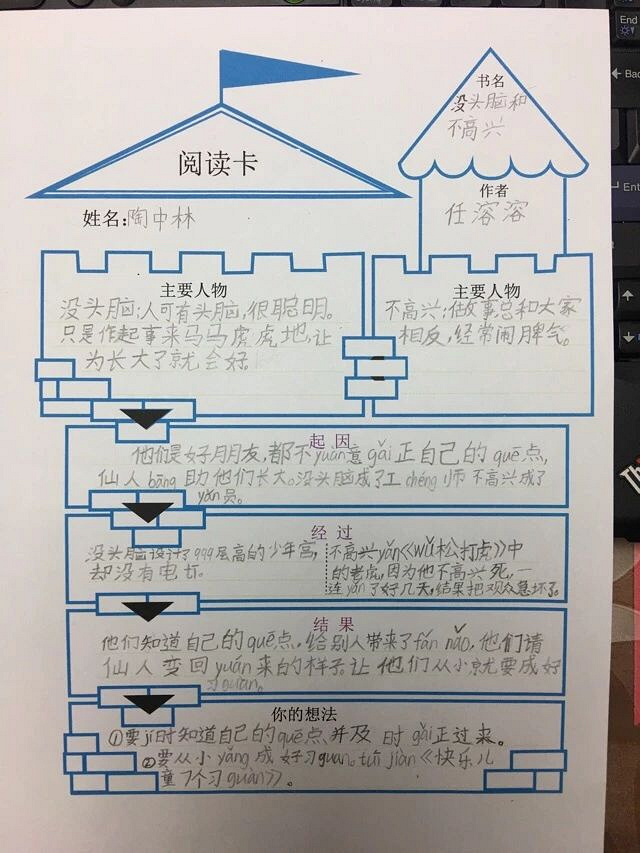 书名
没头脑和
不高兴
阅读卡
作者
任溶溶
姓名:陶中林
主要人物
没头脑:人可有头脑,很聪明。
只是作起事来马马虎虎地,让
为长大了就会好。
主要人物
不高兴:做故事总和大家
相反,经常闹脾气。
起因
他们是好朋友,都不yuàn意gǎi正自己的quē点,
仙人bāng助他们长大。没头脑成了工chéng师 不高兴成了
yǎn员。
经过
没头脑设计了999层高的少年宫,
却没有电梯。
不高兴yǎn《wǔ松打虎》中
的老虎,因为他不高兴死,一
连yǎn了好几天,结果把观众急坏了。
结果
他们知道自己的quē点,给别人带来了fán nǎo,他们请
仙人变回yuán来的样子。让他们从小就要成好
习guàn。
你的想法
①要jí时知道自己的quē点,并及时gǎi正过来。
②要从小yǎng成好习guàn。tuī jiàn《快乐儿
童7个习guàn》。
End
Enter